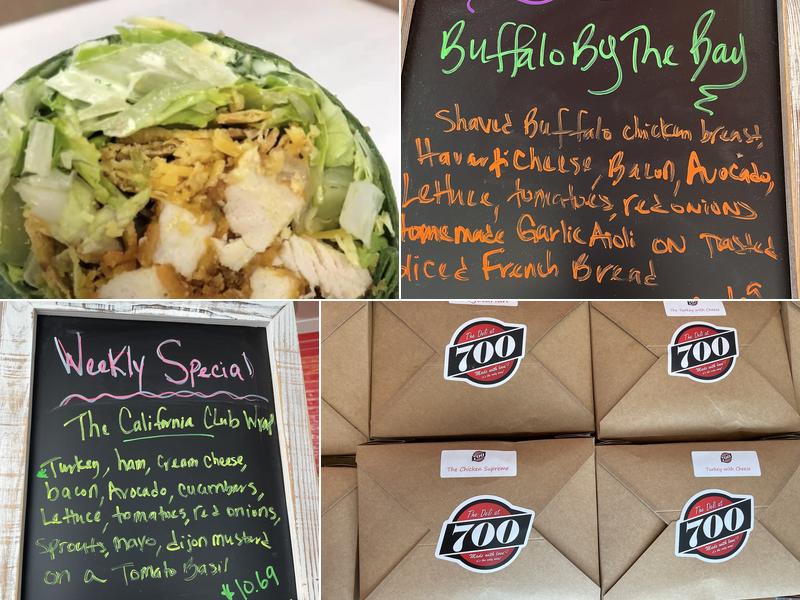 Buffalo By The Bay
Shaved Buffalo chicken breast,
Havarti Cheese, Bacon, Avocado,
Lettuce, tomatoes, red onions
homemade Garlic Aioli on Toasted
sliced French Bread
Weekly Special
The California Club Wrap
Turkey, ham, cream cheese,
bacon, Avocado, cucumbers,
Lettuce, tomatoes, red onions,
Sprouts, mayo, dijon mustard
on a Tomato Basil
$10.69
The Turkey with Cheese
The Deli at
700
Made with love
It's the only way!
The Deli at
700
Made with love
It's the only way!
The Chicken Supreme
Turkey with Cheese
The Deli at
700
Made with love
It's the only way!
The Deli at
700
Made with love
It's the only way!